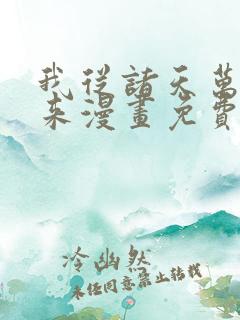 我從諸天萬
來漫畫免費
冷幽然
未经同意禁止转载